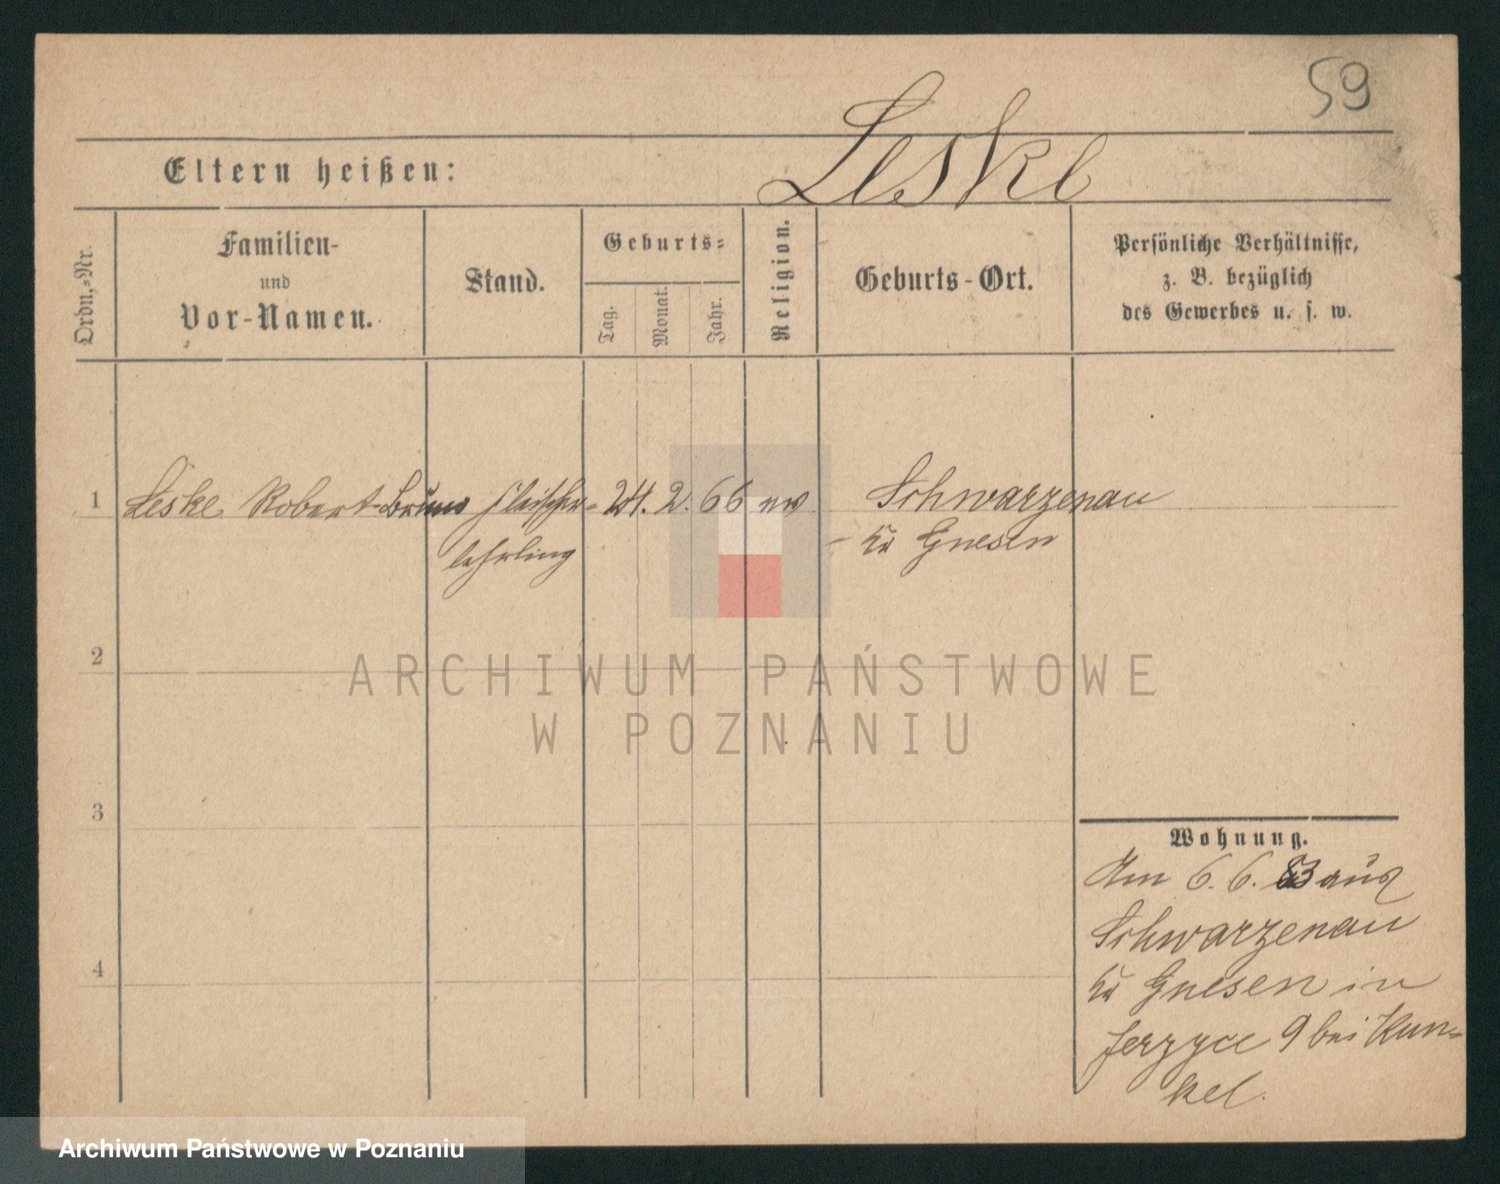 59
Leske
Eltern heißen:
Ordn.-Nr.
Familien-
und
Vor-Namen.
Stand.
Geburts-
Tag.
Monat.
Jahr.
Religion.
Geburts-Ort.
Persönliche Verhältnisse,
z. B. bezüglich
des Gewerbes u. s. w.
1 Leske Robert Bruno Fleischer- 24. 2. 66 ev Schwarzenau
lehrling - Kr Gnesen
2
ARCHIWUM PAŃSTWOWE
W POZNANIU
3
Wohnung.
Am 6. 6. 83 aus
Schwarzenau
4
Kr Gnesen in
Jerzyce 9 bei Kun-
kel.
Archiwum Państwowe w Poznaniu